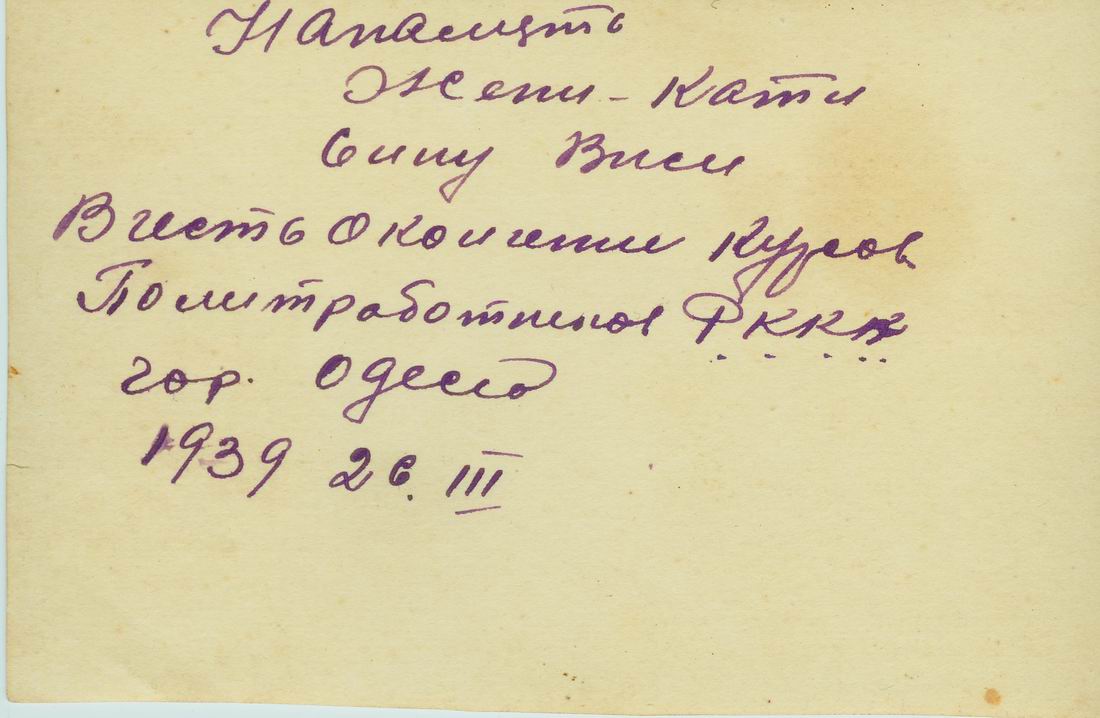 Напамядть
Жени - Кати
сину Виси
В честь Окончении Курсов
Политработников РККА
гор. Одесса
1939 26. III